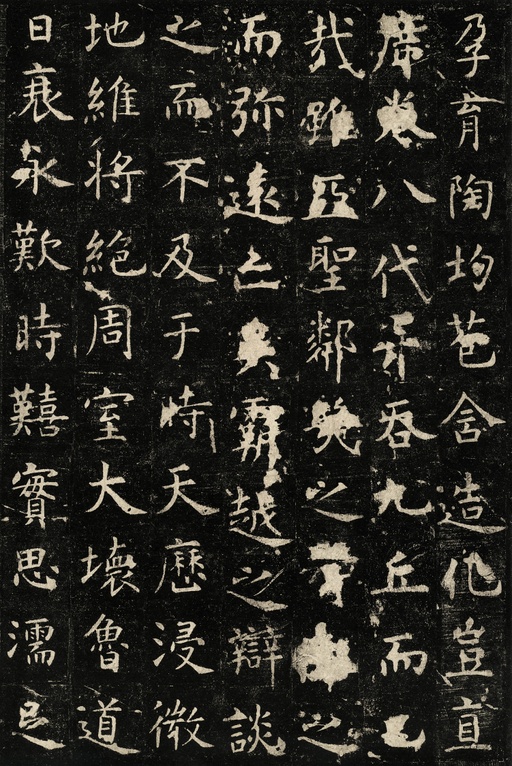 孕育陶均苞含造化豈直
席卷八代并吞九丘而已
哉雖亞聖鄰幾之之
而弥遠亡吳霸越之辯談
之而不及于時天曆浸微
地維將絕周室大壞魯道
日衰永歎時囏實思濡足